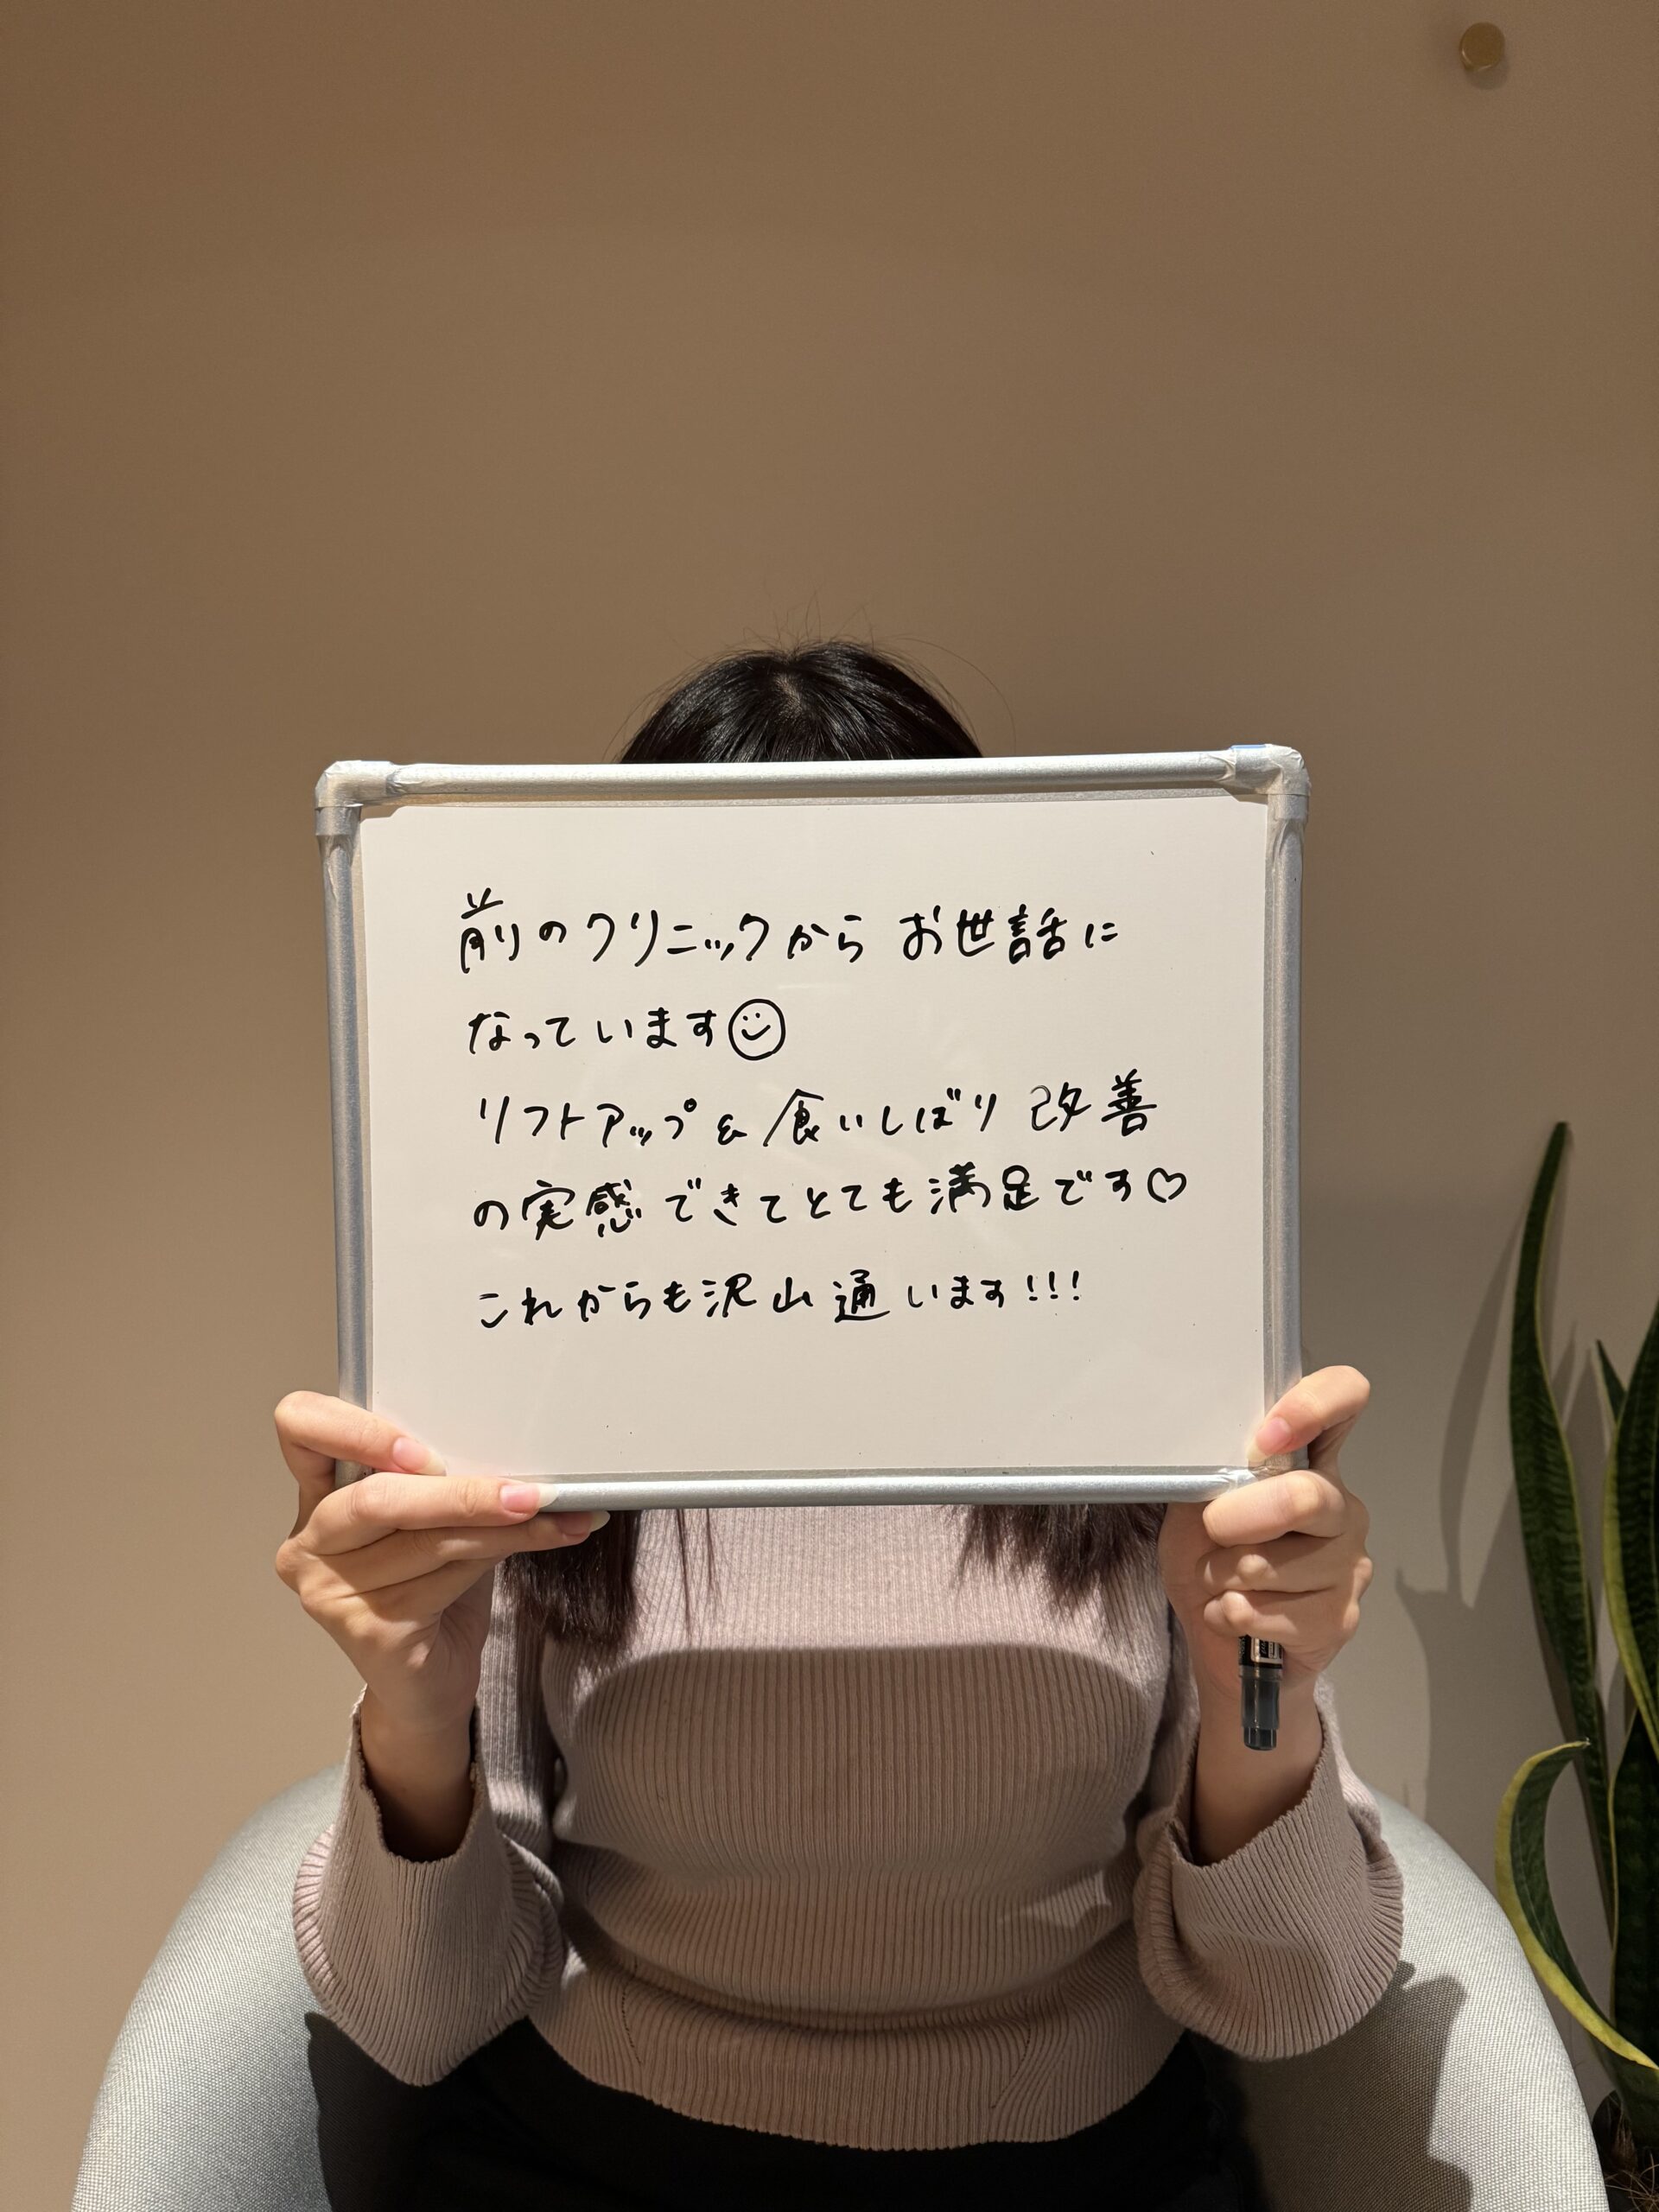 前のクリニックからお世話に
なっています☺
リフトアップ&食いしばり改善
の実感できてとても満足です♡
これからも沢山通います!!!